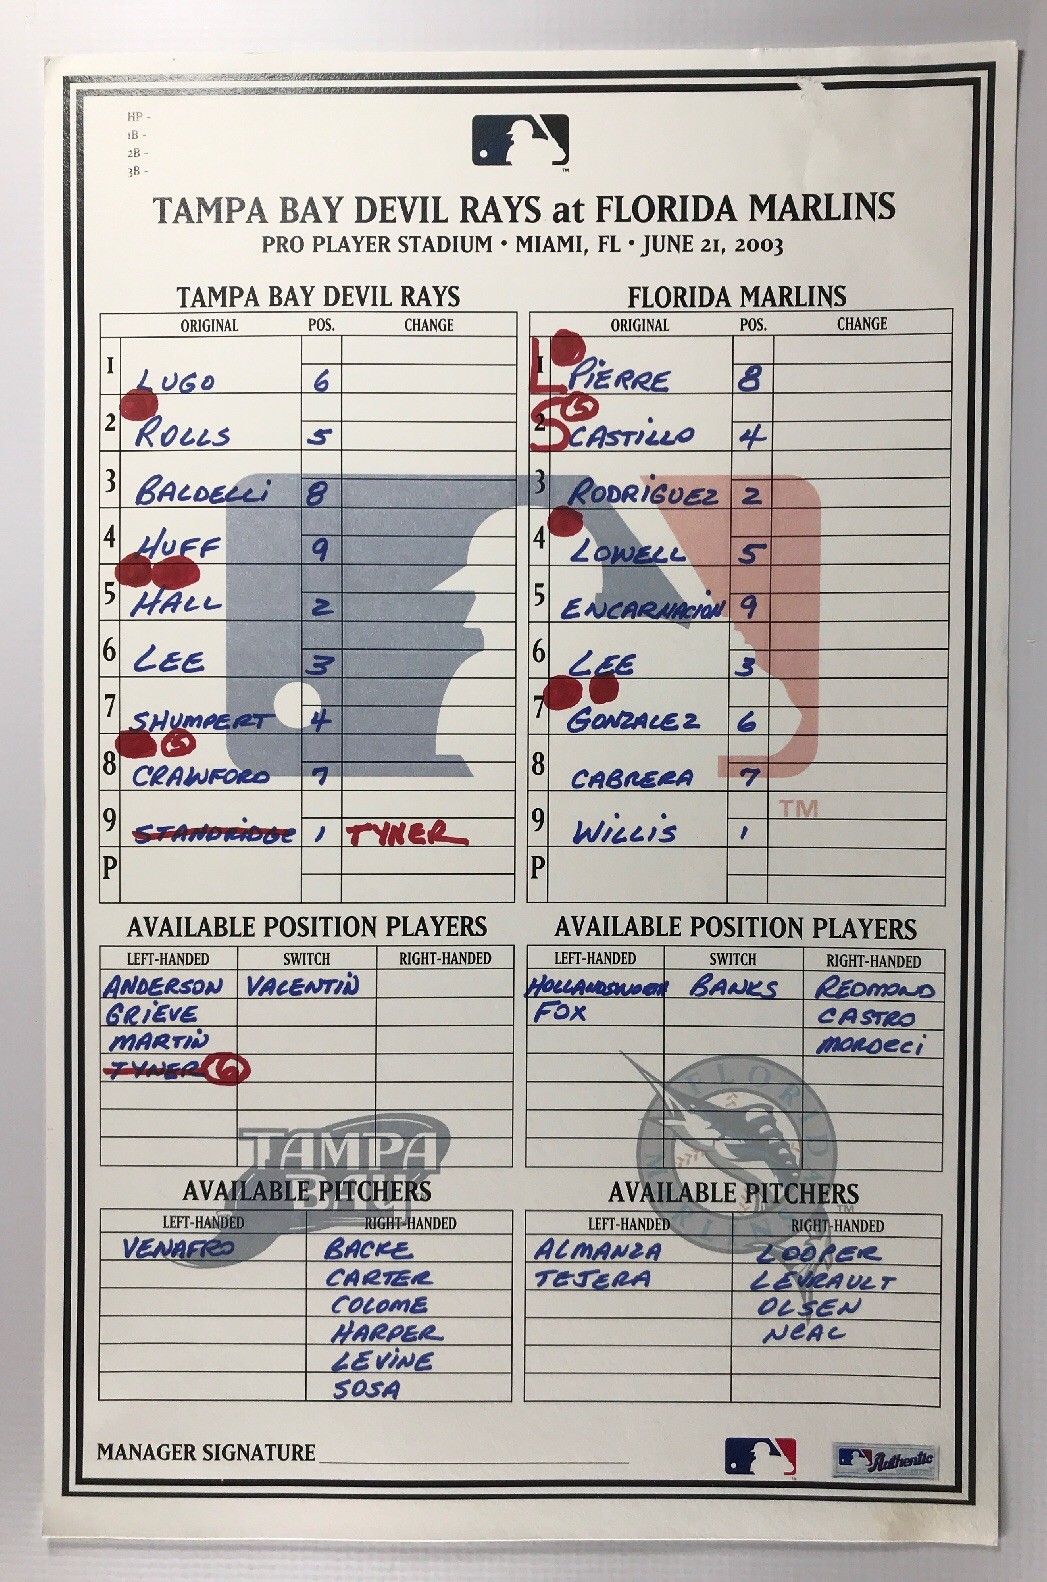 HP -
1B -
2B -
3B -
TAMPA BAY DEVIL RAYS at FLORIDA MARLINS
PRO PLAYER STADIUM • MIAMI, FL • JUNE 21, 2003
TAMPA BAY DEVIL RAYS
ORIGINAL POS. CHANGE
1 LUGO 6
2 ROLLS 5
3 BALDELLI 8
4 HUFF 9
5 HALL 2
6 LEE 3
7 SHUMPERT 4
8 5 CRAWFORD 7
9 STANDRIDGE 1 TYNER
P
FLORIDA MARLINS
ORIGINAL POS. CHANGE
L 1 PIERRE 8
S 2 5 CASTILLO 4
3 RODRIGUEZ 2
4 LOWELL 5
5 ENCARNACION 9
6 LEE 3
7 GONZALEZ 6
8 CABRERA 7
9 WILLIS 1
P
TM
AVAILABLE POSITION PLAYERS
LEFT-HANDED SWITCH RIGHT-HANDED
ANDERSON VALENTIN
GRIEVE
MARTIN
TYNER 6
AVAILABLE POSITION PLAYERS
LEFT-HANDED SWITCH RIGHT-HANDED
HOLLANDSWORTH BANKS REDMOND
FOX CASTRO
MORDECI
TAMPA
BAY
FLORIDA
MARLINS
TM
AVAILABLE PITCHERS
LEFT-HANDED RIGHT-HANDED
VENAFRO BACKE
CARTER
COLOME
HARPER
LEVINE
SOSA
AVAILABLE PITCHERS
LEFT-HANDED RIGHT-HANDED
ALMANZA LOOPER
TEJERA LEVRAULT
OLSEN
NEAL
MANAGER SIGNATURE
Authentic